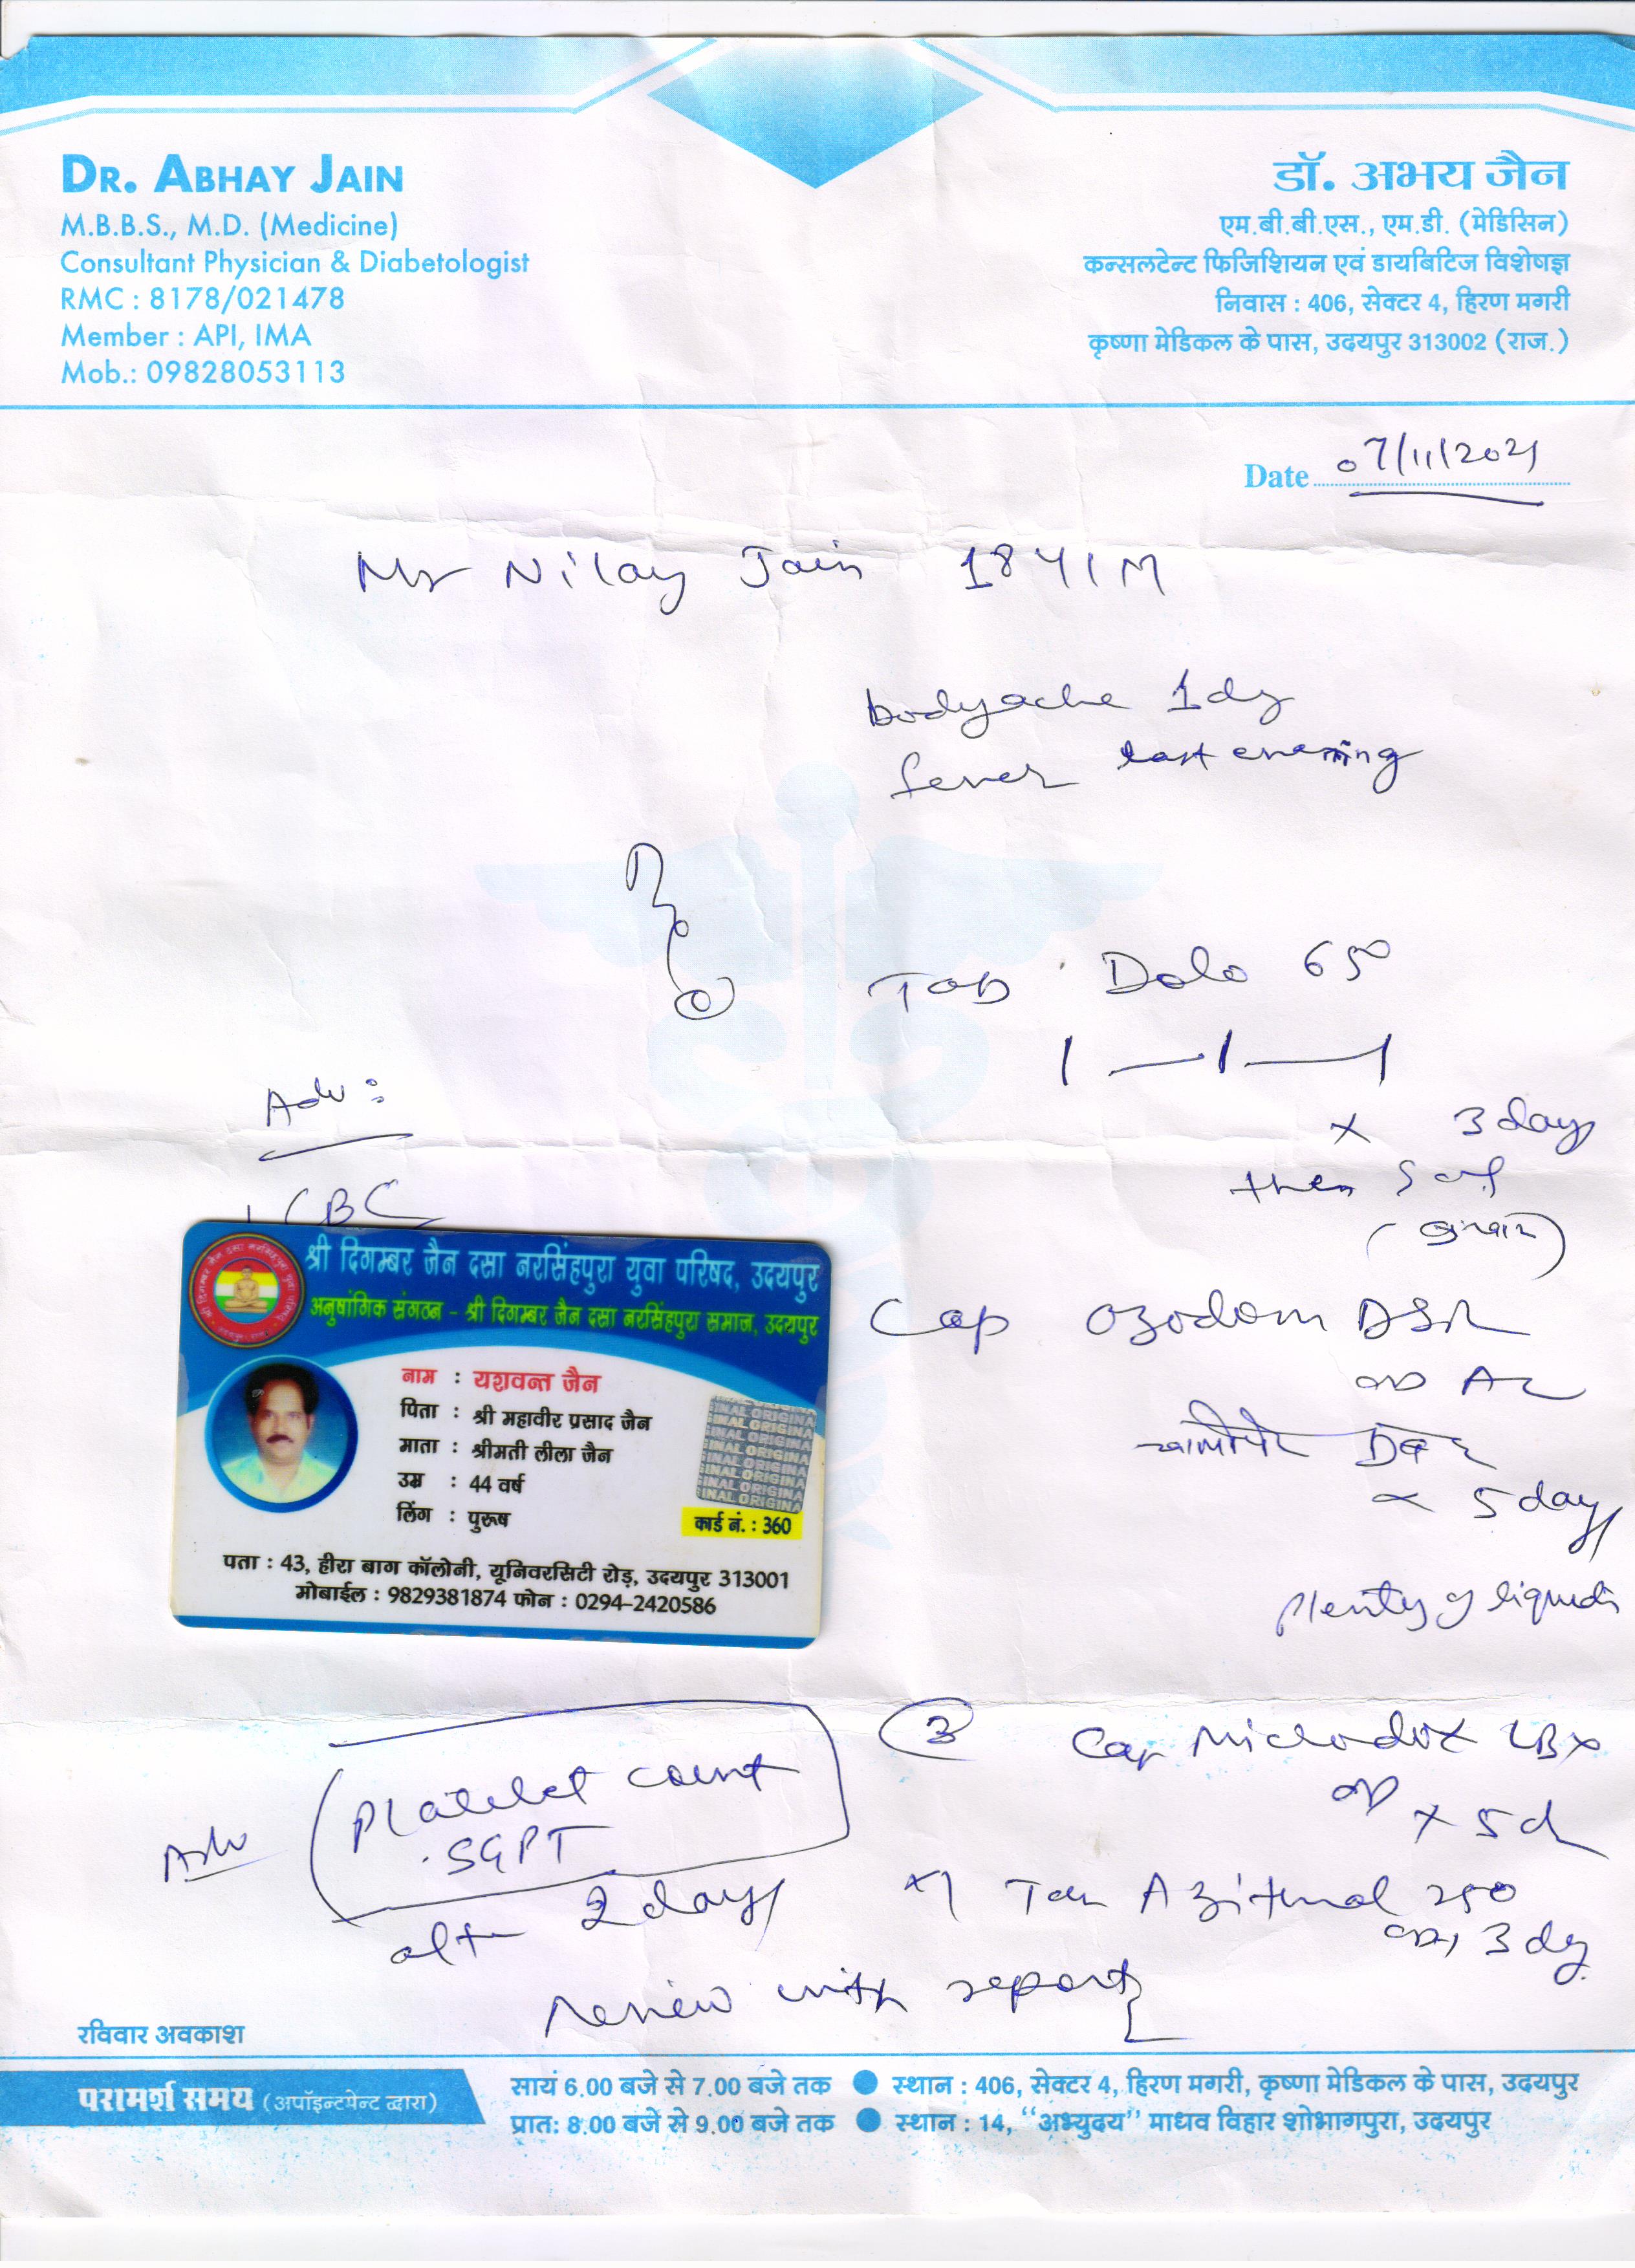 DR. ABHAY JAIN
M.B.B.S., M.D. (Medicine)
Consultant Physician & Diabetologist
RMC : 8178/021478
Member : API, IMA
Mob.: 09828053113
डॉ. अभय जैन
एम.बी.बी.एस., एम.डी. (मेडिसिन)
कन्सलटेन्ट फिजिशियन एवं डायबिटिज विशेषज्ञ
निवास : 406, सेक्टर 4, हिरण मगरी
कृष्णा मेडिकल के पास, उदयपुर 313002 (राज.)
Date 07/11/2021
Mr Nilay Jain 18Y/M
bodyache 1dy
fever last evening
Tab Dolo 650
1—1—1
x 3 day
then
(बुखार)
Adv:
CBC
श्री दिगम्बर जैन दसा नरसिंहपुरा युवा परिषद, उदयपुर
अनुषांगिक संगठन - श्री दिगम्बर जैन दसा नरसिंहपुरा समाज, उदयपुर
नाम : यशवन्त जैन
पिता : श्री महावीर प्रसाद जैन
माता : श्रीमती लीला जैन
उम्र : 44 वर्ष
लिंग : पुरूष
कार्ड नं. : 360
पता : 43, हीरा बाग कॉलोनी, यूनिवरसिटी रोड़, उदयपुर 313001
मोबाईल : 9829381874 फोन : 0294-2420586
Cap Ozodom DSR
OD AC
5 day
Plenty of liquids
3 Cap Microdox LBX
OD x 5d
Adv Platelet count
SGPT
aft 2 days
Tab Azithral 250
3 dy
review with reports
रविवार अवकाश
परामर्श समय (अपॉइन्टमेन्ट द्वारा)
सायं 6.00 बजे से 7.00 बजे तक ● स्थान : 406, सेक्टर 4, हिरण मगरी, कृष्णा मेडिकल के पास, उदयपुर
प्रात: 8.00 बजे से 9.00 बजे तक ● स्थान : 14, "अभ्युदय" माधव विहार शोभागपुरा, उदयपुर